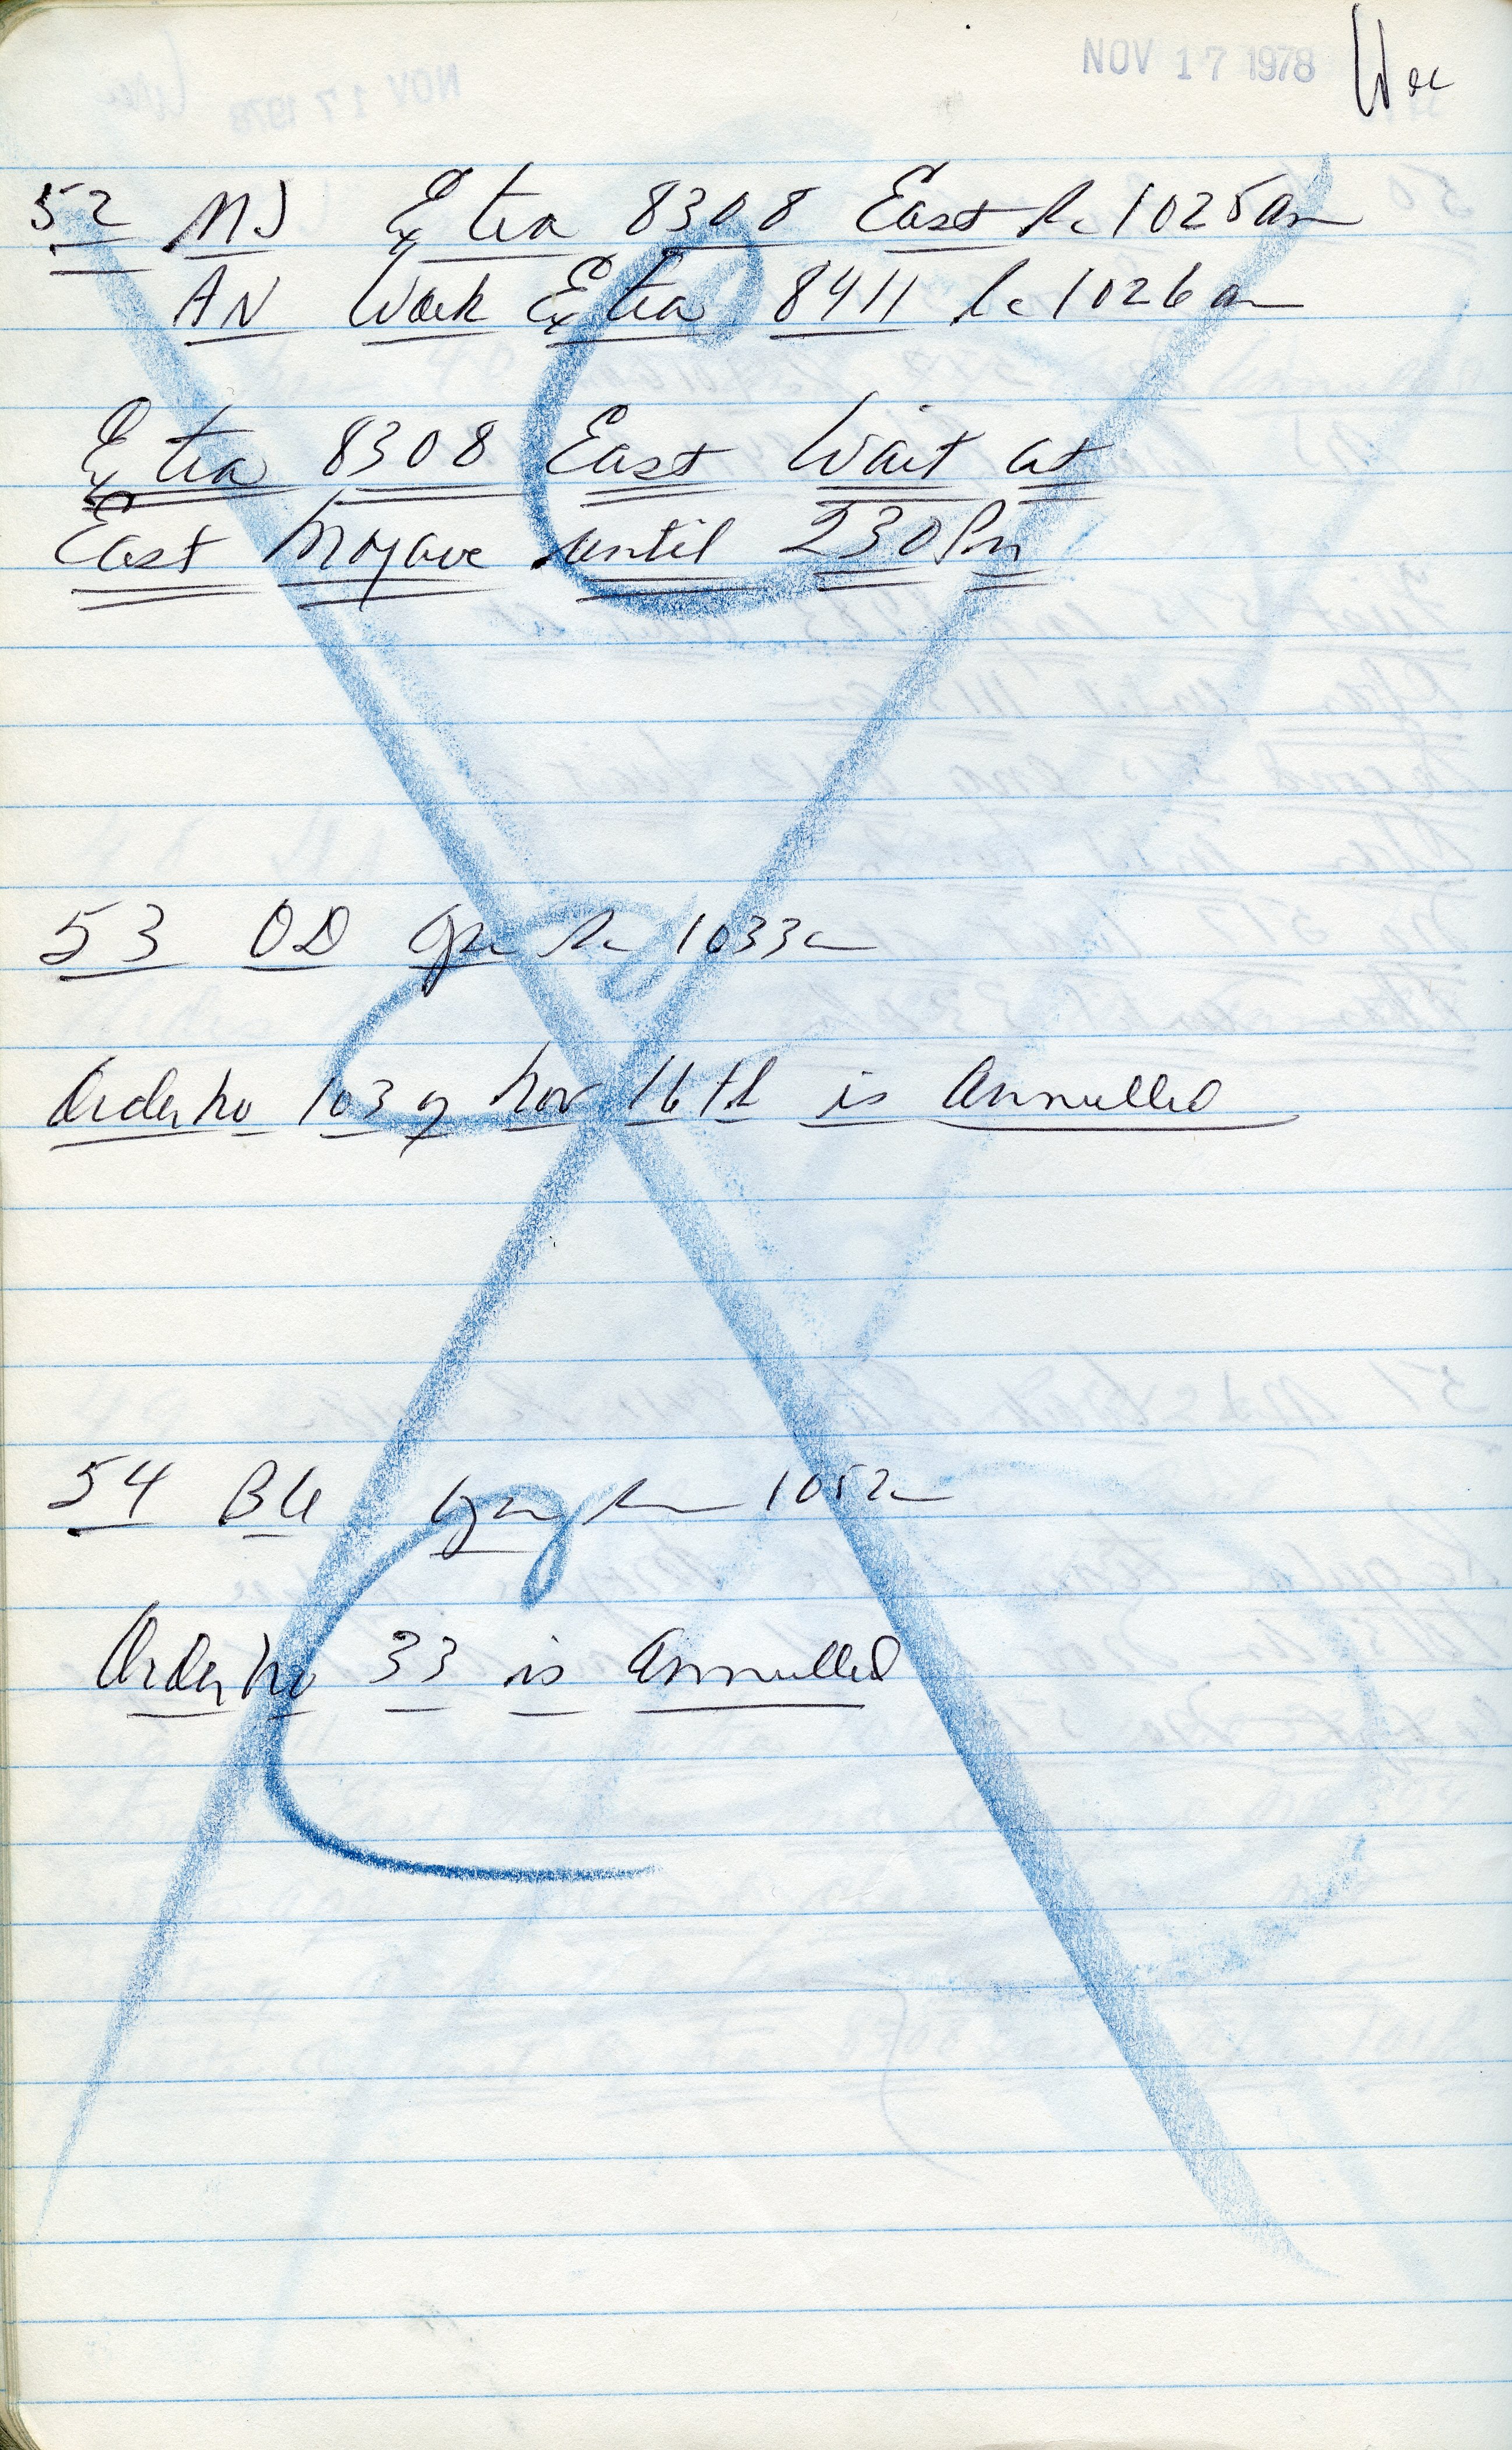 NOV 17 1978
52 MJ Extra 8308 East 1025am
AN Work Extra 8411 1026am
Extra 8308 East Wait at
East Mojave until 230Pm
53 OD Opr 1033
Order No 103 of Nov 16th is Annulled
54 1052
Order No 33 is Annulled